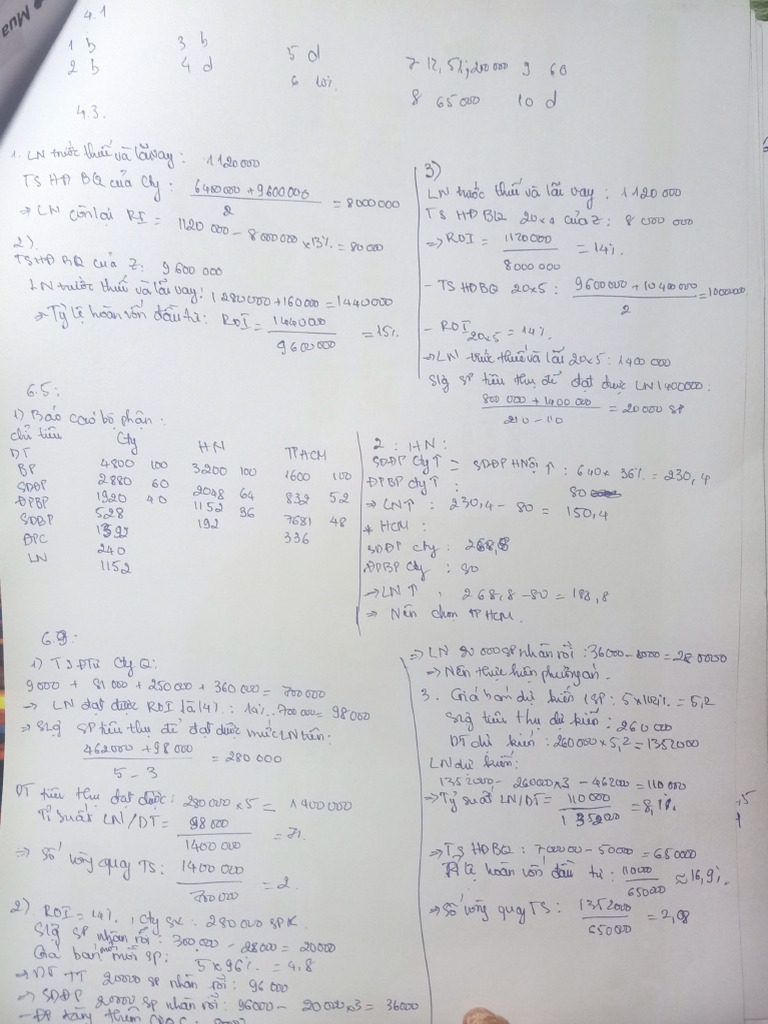 Mua
4.1
1 b 3 b 5 d 7 12,5%; 200000 9 60
2 b 4 d 6 10% 8 65000 10 d
4.3.
1. LN trước thuế và lãi vay: 1120000
TS HĐ BQ của Cty: 6400000 + 9600000 / 2 = 8000000
⇒ LN còn lại RI = 1120 000 - 8000000 x 13% = 80000
2)
TS HĐ BQ của Z: 9 600 000
LN trước thuế và lãi vay: 1280000 + 160000 = 1440000
⇒ Tỷ lệ hoàn vốn đầu tư: ROI = 1440000 / 9600000 = 15%
3)
LN trước thuế và lãi vay: 1120 000
TS HĐ BQ 20x4 của Z: 8 000 000
⇒ ROI = 1120000 / 8000000 = 14%
- TS HĐBQ 20x5: 9600000 + 10400000 / 2 = 10000000
- ROI 20x5 = 14%
⇒ LN trước thuế và lãi 20x5: 1400 000
Slg SP tiêu thụ để đạt được LN 1400000:
800 000 + 1400 000 / 210 - 110 = 20000 SP
6.5:
1) Báo cáo bộ phận:
chỉ tiêu Cty HN TPHCM
DT 4800 100 3200 100 1600 100
BP 2880 60 2048 64 832 52
SDĐP 1920 40 1152 36 7681 48
ĐPBP 528 192 336
SDBP
ĐPC 240
LN 1152
2: HN:
SDĐP Cty↑ = SDĐP HNội↑: 640 x 36% = 230,4
ĐPBP cty↑: 80
⇒ LN↑: 230,4 - 80 = 150,4
* HCM:
SDĐP cty: 268,8
ĐPBP Cty: 80
→ LN↑, 268,8 - 80 = 188,8
⇒ Nên chọn TPHCM.
6.9:
1) TSĐTư Cty Q:
9000 + 81000 + 250000 + 360000 = 700000
→ LN đạt được ROI là 14%: 14%. 700000 = 98000
⇒ Slg SP tiêu thụ để đạt được mức LN trên:
462000 + 98000 / 5 - 3 = 280000
DT tiêu thụ đạt được: 280000 x 5 = 1400000
Tỉ suất LN/DT = 98000 / 1400000 = 7%
⇒ Số vòng quay TS: 1400 000 / 700000 = 2
2) ROI = 14%, Cty SX: 280000 SPK
Slg SP nhàn rỗi: 300.000 - 28000 = 20000
Giá bán mới mỗi SP: 5 x 96% = 4.8
⇒ DT TT 20000 SP nhàn rỗi: 96000
⇒ SDĐP 20000 SP nhàn rỗi: 96000 - 20000 x 3 = 36000
- ĐP tăng thêm
⇒ LN 20000 SP nhàn rỗi: 36000 - 8000 = 280000
→ Nên thực hiện phương án.
3. Giá bán dự kiến 1SP: 5 x 104% = 5,2
Slg tiêu thụ dự kiến: 260 000
DT dự kiến: 260000 x 5,2 = 1352000
LN dự kiến:
1352000 - 260000 x 3 - 462000 = 110 000
→ Tỷ suất LN/DT = 110000 / 1352000 = 8,1%
⇒ TS HĐBQ: 700000 - 50000 = 650000
Tỉ lệ hoàn vốn đầu tư: 110000 / 650000 ≈ 16,9%
⇒ Số vòng quay TS: 1352000 / 650000 = 2,08